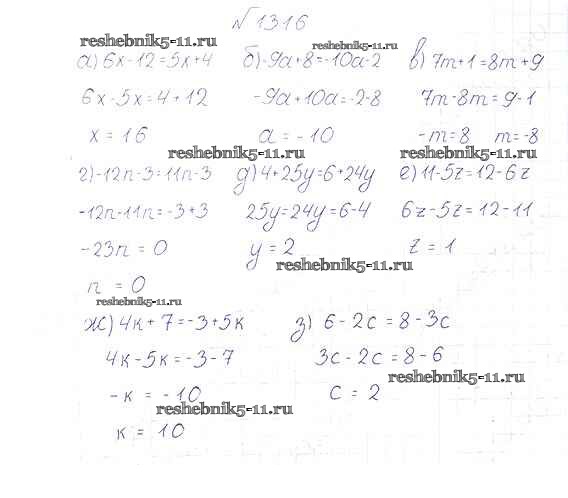 №1316
reshebnik5-11.ru reshebnik5-11.ru
а) 6x-12=5x+4 б) -9a+8=-10a-2 в) 7m+1=8m+9
6x-5x=4+12 -9a+10a=-2-8 7m-8m=9-1
x=16 a=-10 -m=8 m=-8
reshebnik5-11.ru reshebnik5-11.ru
г) -12n-3=11n-3 д) 4+25y=6+24y е) 11-5z=12-6z
-12n-11n=-3+3 25y=24y=6-4 6z-5z=12-11
-23n=0 y=2 z=1
reshebnik5-11.ru
n=0
reshebnik5-11.ru
ж) 4к+7=-3+5к з) 6-2c=8-3c
4к-5к=-3-7 3c-2c=8-6
reshebnik5-11.ru
-к=-10 c=2
reshebnik5-11.ru
к=10